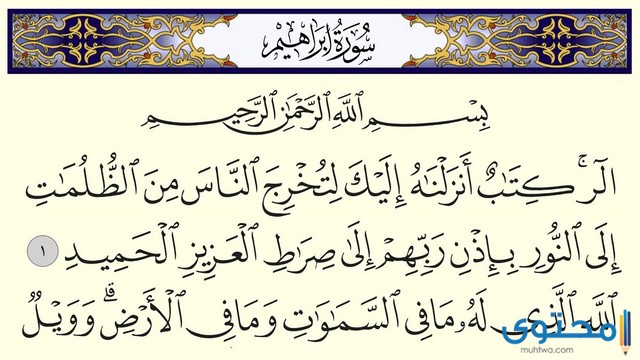 سُورَةُ إِبْرَاهِيم
بِسْمِ ٱللَّهِ ٱلرَّحْمَٰنِ ٱلرَّحِيمِ
الٓرۚ كِتَٰبٌ أَنزَلْنَٰهُ إِلَيْكَ لِتُخْرِجَ ٱلنَّاسَ مِنَ ٱلظُّلُمَٰتِ
إِلَى ٱلنُّورِ بِإِذْنِ رَبِّهِمْ إِلَىٰ صِرَٰطِ ٱلْعَزِيزِ ٱلْحَمِيدِ ١
ٱللَّهِ ٱلَّذِى لَهُۥ مَا فِى ٱلسَّمَٰوَٰتِ وَمَا فِى ٱلْأَرْضِۗ وَوَيْلٌ
محتوى
muhtwa.com